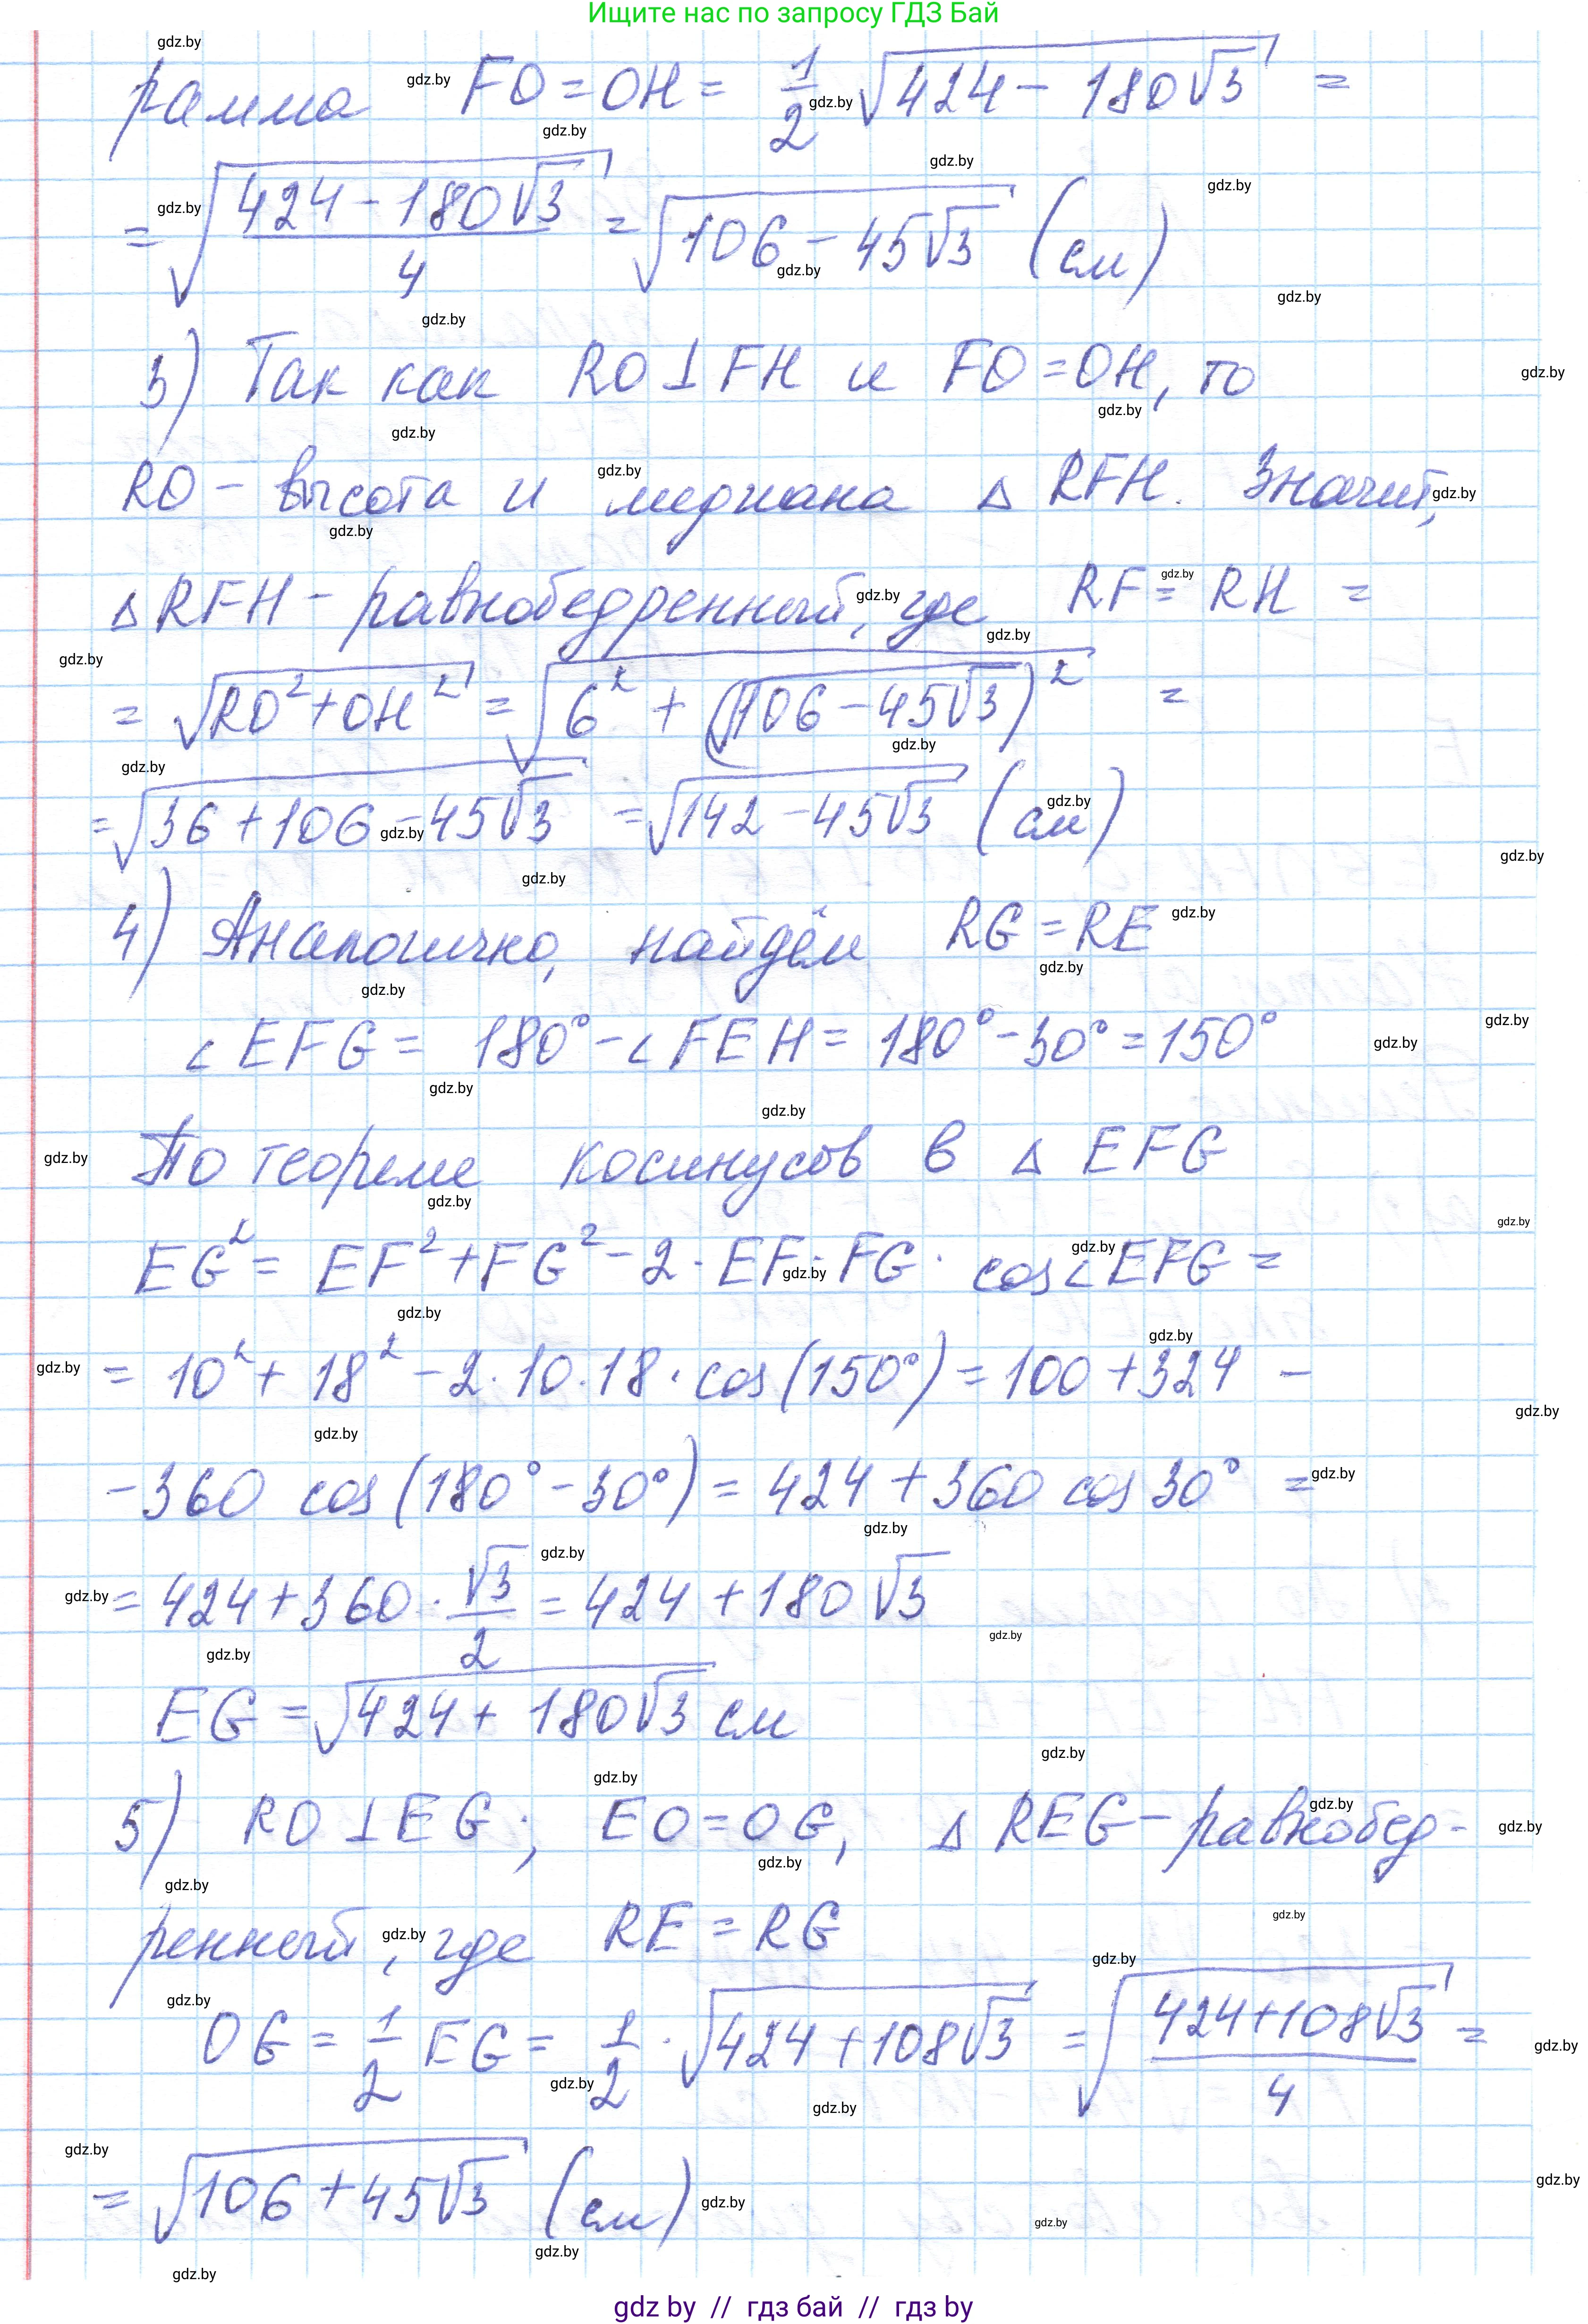 Ищите нас по запросу ГДЗ Бай
рамма FO = OH = 1/2 √(424 - 180√3) =
= √((424 - 180√3)/4) = √(106 - 45√3) (см)
3) Так как RO ⊥ FH и FO = OH, то
RO - высота и медиана △ RFH. Значит,
△ RFH - равнобедренный, где RF = RH =
= √(RO² + OH²) = √(6² + (√(106 - 45√3))²) =
= √(36 + 106 - 45√3) = √(142 - 45√3) (см)
4) Аналогично, найдём RG = RE
∠EFG = 180° - ∠FEH = 180° - 30° = 150°
По теореме косинусов в △ EFG
EG² = EF² + FG² - 2 · EF · FG · cos∠EFG =
= 10² + 18² - 2 · 10 · 18 · cos(150°) = 100 + 324 -
- 360 cos(180° - 30°) = 424 + 360 cos 30° =
= 424 + 360 · √3/2 = 424 + 180√3
EG = √(424 + 180√3) см
5) RO ⊥ EG; EO = OG, △ REG - равнобед-
ренный, где RE = RG
OG = 1/2 EG = 1/2 · √(424 + 108√3) = √((424 + 108√3)/4) =
= √(106 + 45√3) (см)
gdz by // гдз бай // гдз by